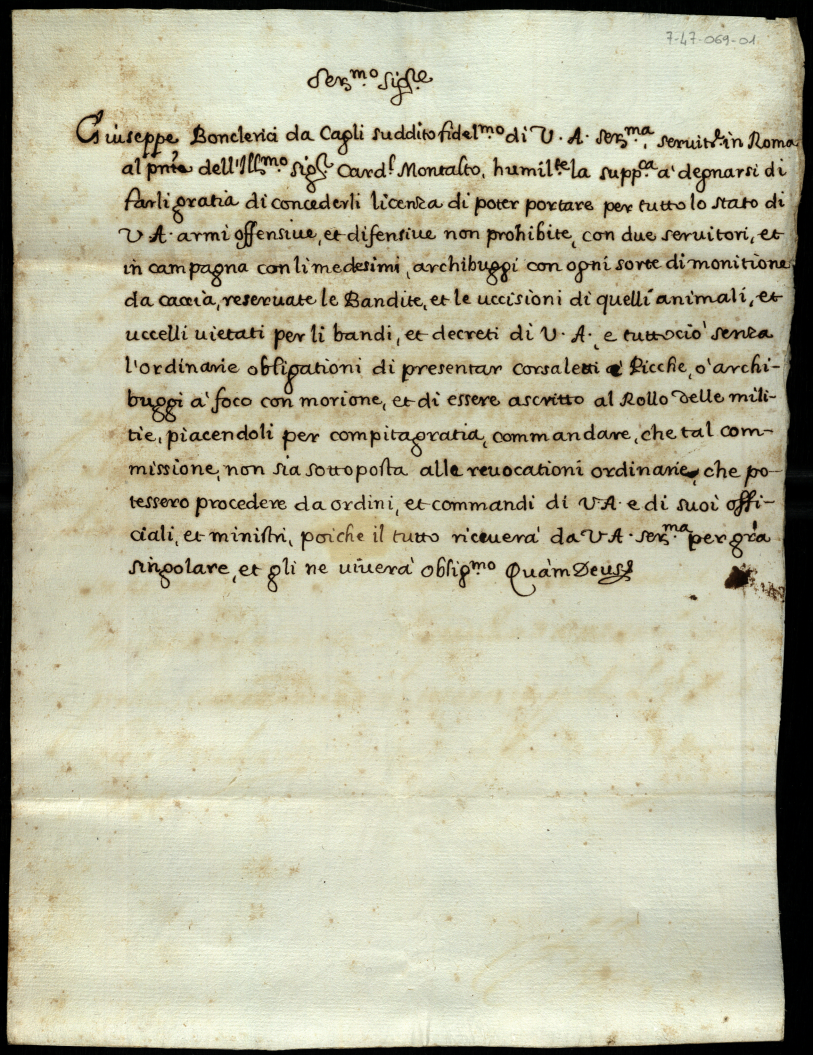 7-47-069-01
Ser.mo Sig.re
Giuseppe Bonclerici da Cagli suddito fidel.mo di V. A. ser.ma, seruit.re in Roma
al pnte dell'Ill.mo sig.r Card.l Montalto, humil.te la supp.ca à degnarsi di
farli gratia di concederli licenza di poter portare per tutto lo stato di
V A. armi offensiue, et difensiue non prohibite, con due seruitori, et
in campagna con li medesimi, archibuggi con ogni sorte di monitione
da caccia, reseruate le Bandite, et le uccisioni di quelli animali, et
uccelli uietati per li bandi, et decreti di V. A. e tutto ciò senza
l'ordinarie obligationi di presentar corsaletti è Picche, ò archi-
buggi à foco con morione, et di essere ascritto al Rollo delle mili-
tie, piacendoli per compita gratia, commandare, che tal com-
missione, non sia sottoposta alle reuocationi ordinarie, che po-
tessero procedere da ordini, et commandi di V A. e di suoi offi-
ciali, et ministri, poiche il tutto riceuerà da V A. ser.ma per gra
singolare, et gli ne uiuerà oblig.mo Quàm Deus